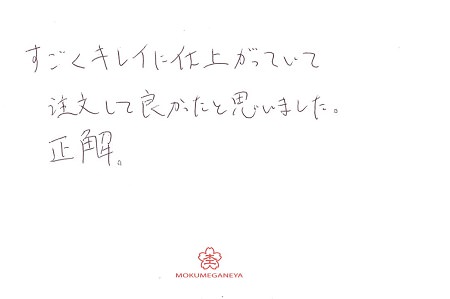 すごくキレイに仕上がっていて
注文して良かったと思いました。
正解。
MOKUMEGANEYA